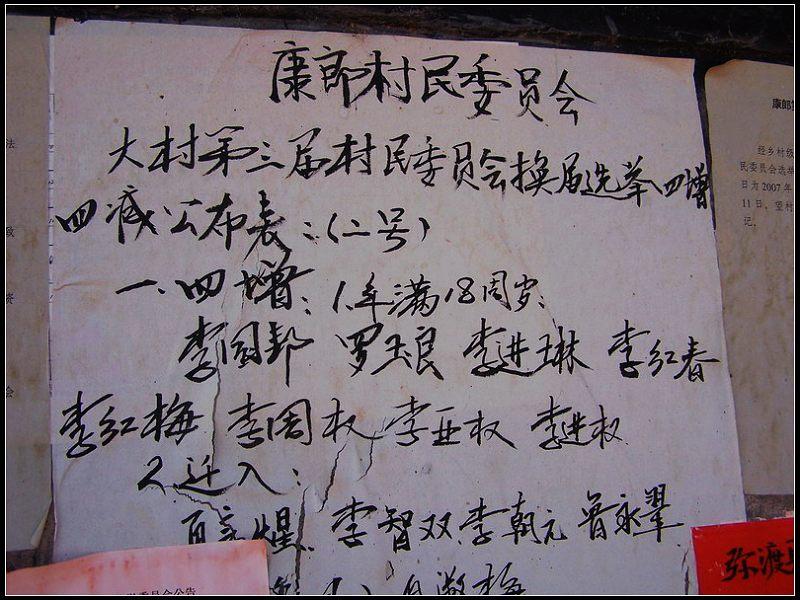 康郎村民委员会
大村第三届村民委员会换届选举四增
四减公布表：(二号)
一.四增：1.年满18周岁:
李国邦 罗玉良 李进琳 李红春
李红梅 李国权 李亚权 李进权
2.迁入：
李智双 李朝元 曾永翠
梅
康郎
经乡村级
民委员会选举
日为2007年
11日。望村
记。
法
致
资
会
委员会公告
弥渡